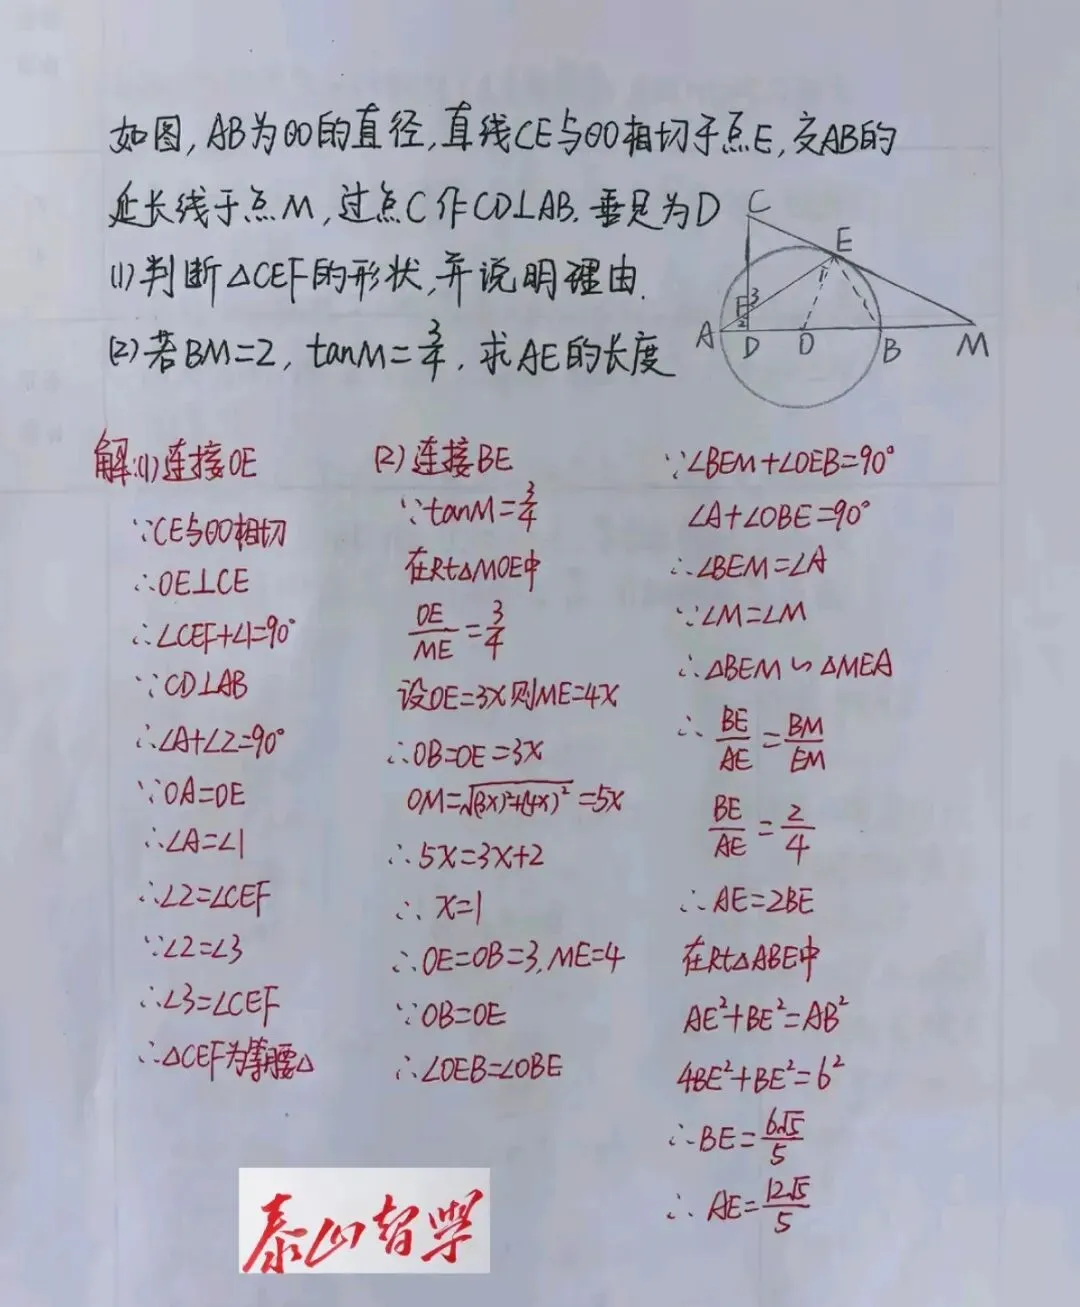 如图,AB为⊙O的直径,直线CE与⊙O相切于点E,交AB的
延长线于点M,过点C作CD⊥AB.垂足为D
(1)判断△CEF的形状,并说明理由.
(2)若BM=2, tanM=3/4, 求AE的长度
C
E
F 3
2
A D O B M
解:(1)连接OE
∵CE与⊙O相切
∴OE⊥CE
∴∠CEF+∠1=90°
∵CD⊥AB
∴∠A+∠2=90°
∵OA=OE
∴∠A=∠1
∴∠2=∠CEF
∵∠2=∠3
∴∠3=∠CEF
∴△CEF为等腰△
(2)连接BE
∵tanM=3/4
在Rt△MOE中
OE/ME=3/4
设OE=3X则ME=4X
∴OB=OE=3X
OM=√(3X)²+(4X)²=5X
∴5X=3X+2
∴X=1
∴OE=OB=3,ME=4
∵OB=OE
∴∠OEB=∠OBE
∵∠BEM+∠OEB=90°
∠A+∠OBE=90°
∴∠BEM=∠A
∵∠M=∠M
∴△BEM∽△MEA
∴BE/AE=BM/EM
BE/AE=2/4
∴AE=2BE
在Rt△ABE中
AE²+BE²=AB²
4BE²+BE²=6²
∴BE=6√5/5
∴AE=12√5/5
泰山智学